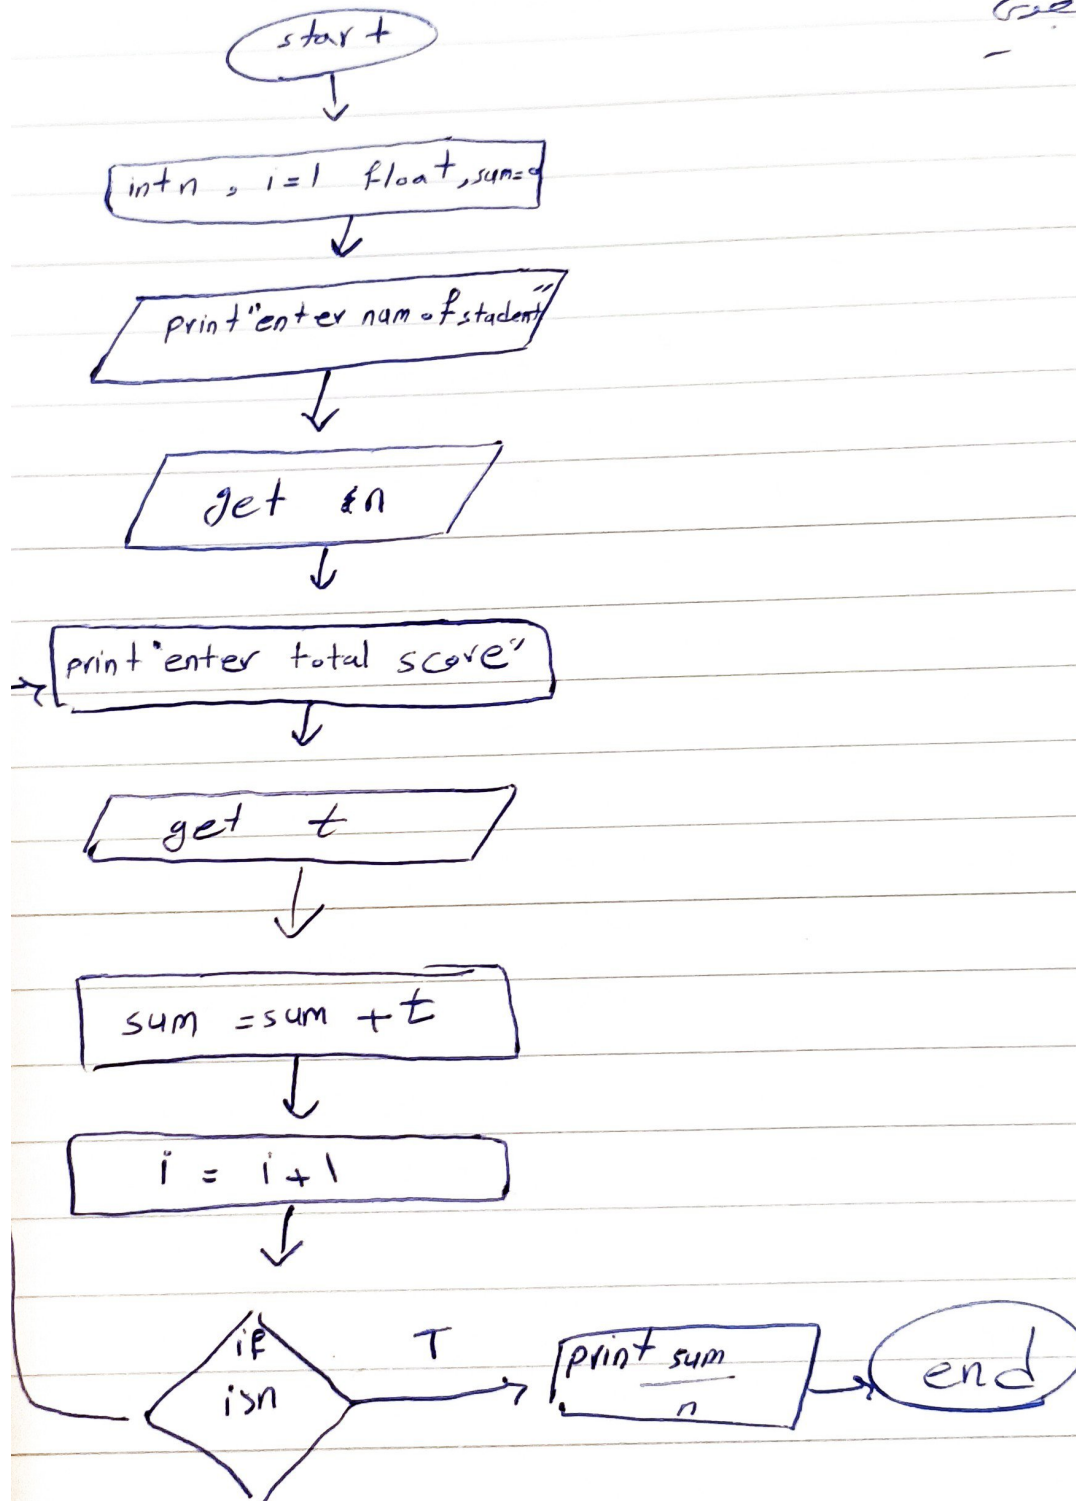 start
int n , i=1 float, sum=0
print "enter num of student"
get n
print "enter total score"
get t
sum = sum + t
i = i+1
if
T
print sum
n
end